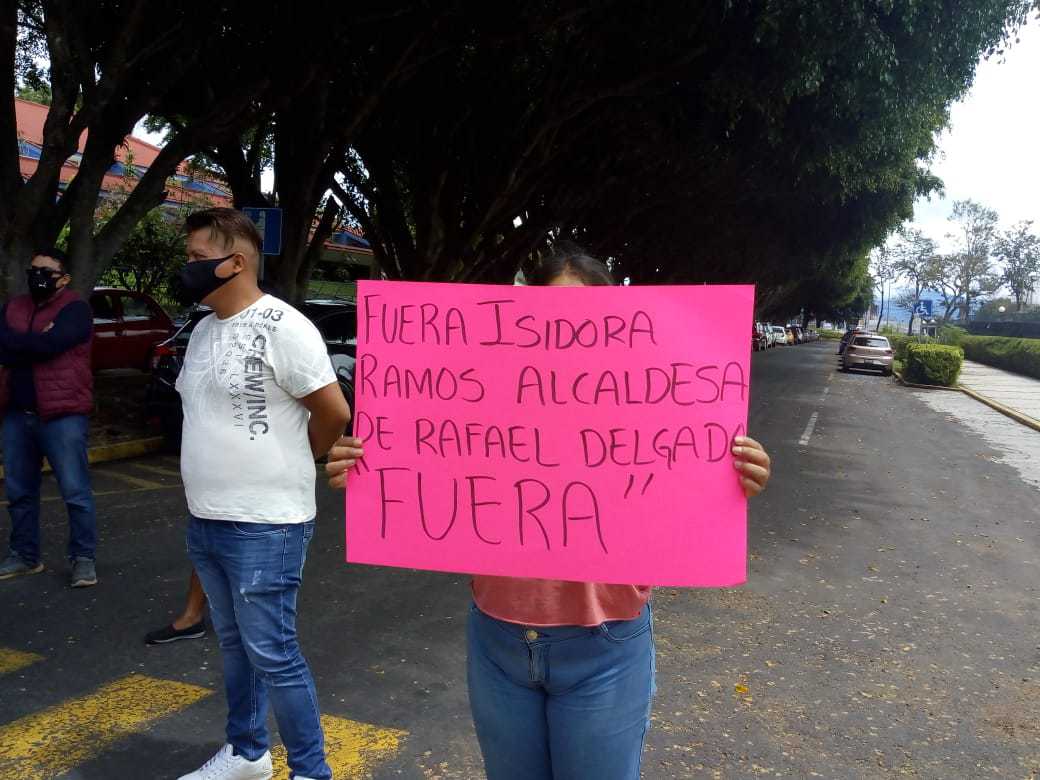 FUERA ISIDORA
RAMOS ALCALDESA
DE RAFAEL DELGADO
FUERA"
01-03
LXXXVI
CREW/INC.